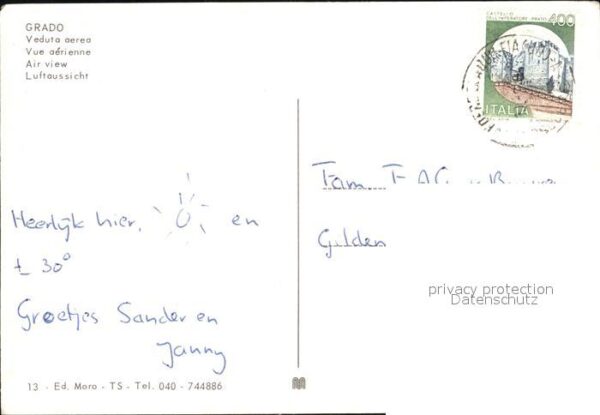 GRADO
Veduta aerea
Vue aérienne
Air view
Luftaussicht
CASTELLO
DELL'IMPERATORE - PRATO
400
ITALIA
Heerlijk hier, en
± 30°
Groetjes Sander en
Janny
Fam.
Gulden
privacy protection
Datenschutz
13 - Ed. Moro - TS - Tel. 040 - 744886